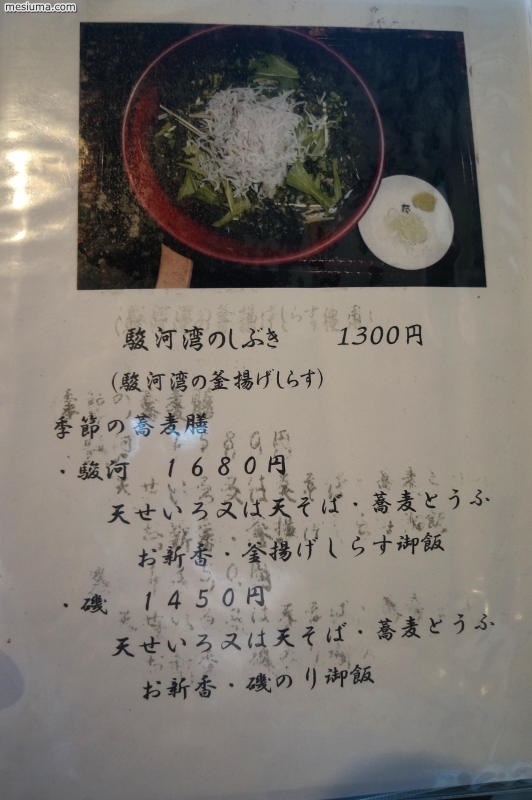 mesiuma.com
駿河湾のしぶき 1300円
(駿河湾の釜揚げしらす)
季節の蕎麦膳
・駿河 1680円
天せいろ又は天そば・蕎麦とうふ
お新香・釜揚げしらす御飯
・磯 1450円
天せいろ又は天そば・蕎麦とうふ
お新香・磯のり御飯